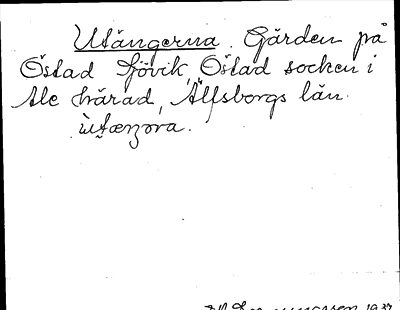 Utängerna. Gärden på
Östad Sjövik, Östad socken i
Ale härad, Älfsborgs län.
ùtænɡ̣ɷra.
1937